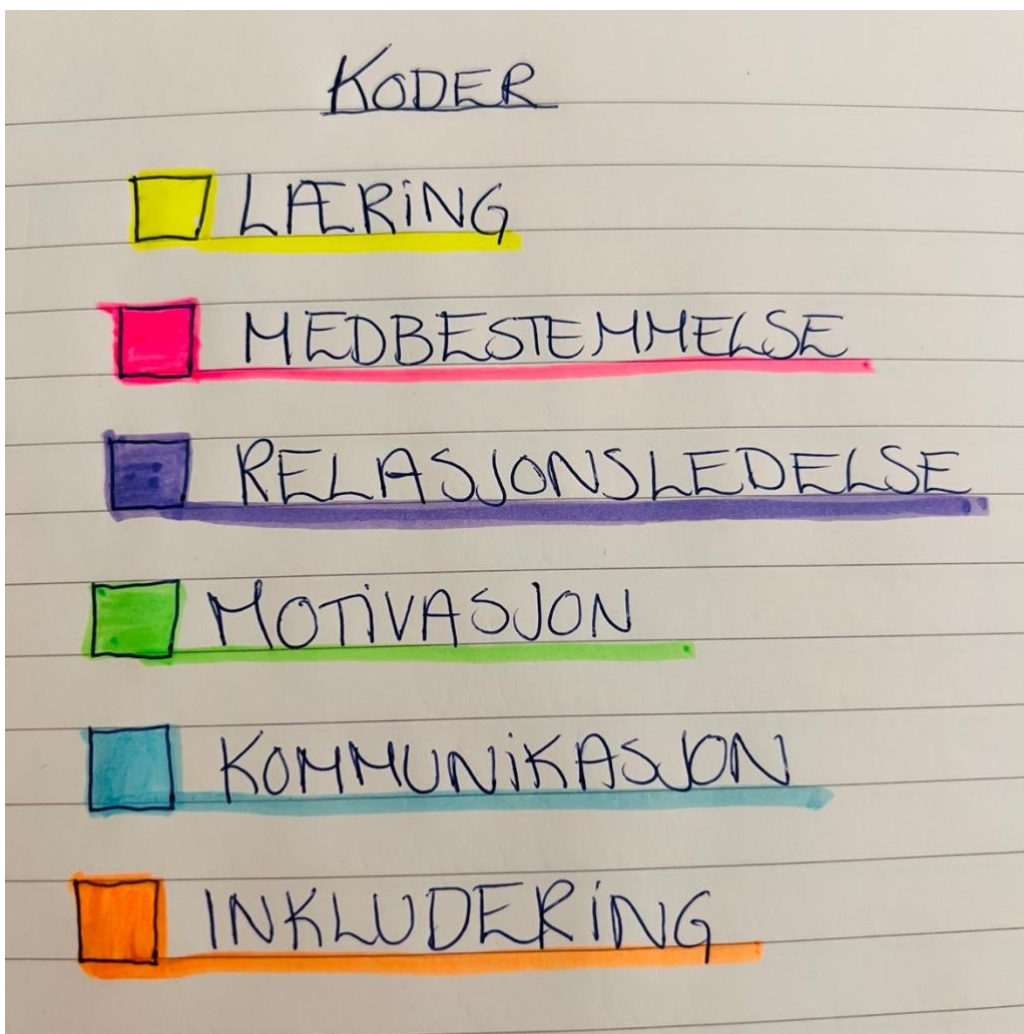 KODER
LÆRiNG
MEDBESTEMMELSE
RELASJONSLEDELSE
MOTiVASJON
KOMMUNiKASJON
INKLUDERiNG